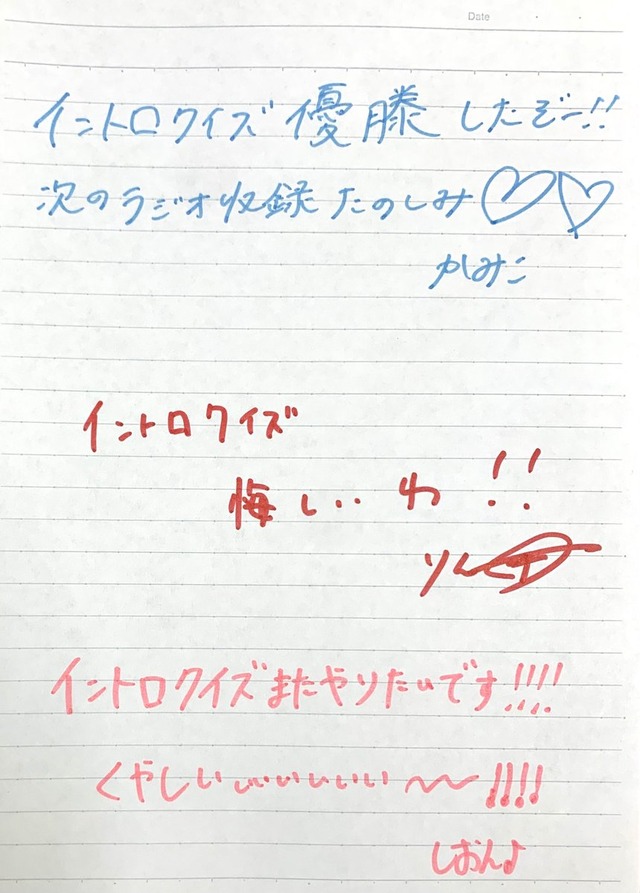 Date
イントロクイズ優勝したぞー!!
次のラジオ収録たのしみ♡♡
かみこ
イントロクイズ
悔しい・・わ!!
イントロクイズまたやりたいです!!!!
くやしいいいいいい〜〜!!!!
しおん♪